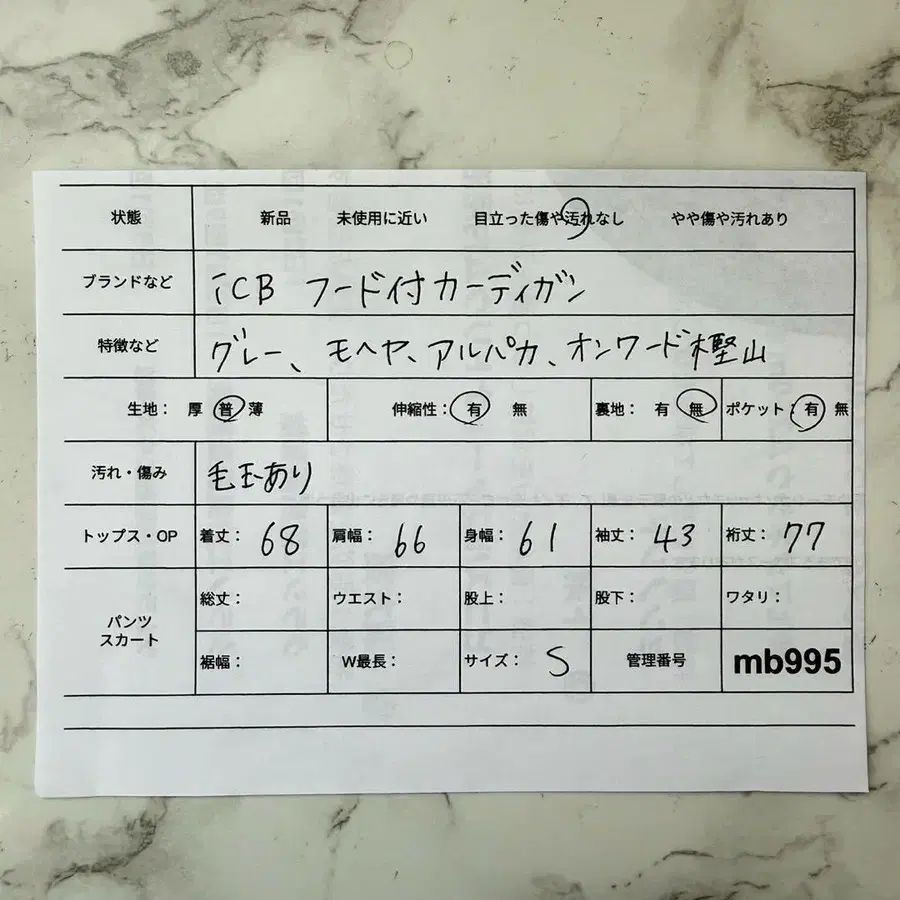 状態 新品 未使用に近い 目立った傷や汚れなし やや傷や汚れあり
ブランドなど iCB フード付カーディガン
特徴など グレー、モヘヤ、アルパカ、オンワード樫山
生地: 厚 普 薄 伸縮性: 有 無 裏地: 有 無 ポケット: 有 無
汚れ・傷み 毛玉あり
トップス・OP 着丈: 68 肩幅: 66 身幅: 61 袖丈: 43 裄丈: 77
パンツ
スカート
総丈: ウエスト: 股上: 股下: ワタリ:
裾幅: W最長: サイズ: S 管理番号 mb995